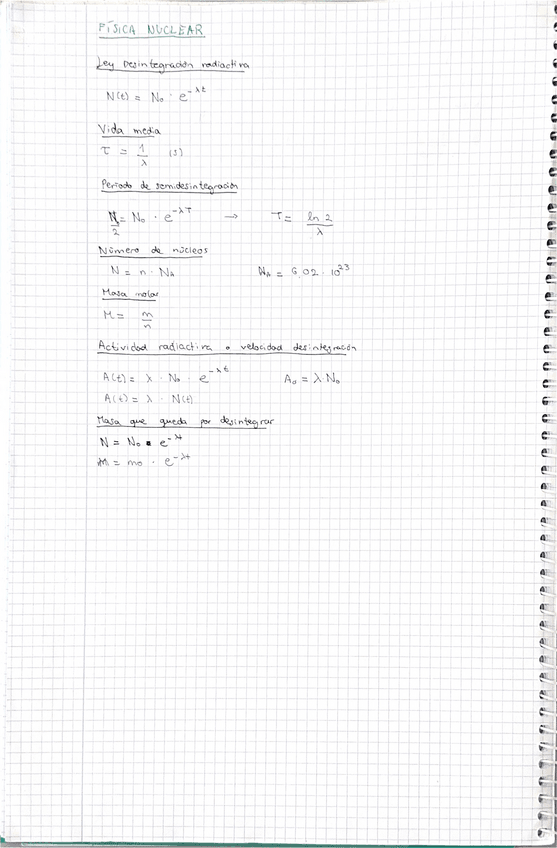 FÍSICA NUCLEAR
Ley Desintegración radiactiva
N(t) = N₀ · e^-λt
Vida media
τ = 1/λ (s)
Período de semidesintegración
N/2 = N₀ · e^-λT → T = ln 2/λ
Número de núcleos
N = n · Nₐ Nₐ = 6,02 · 10^23
Masa molar
M = m/n
Actividad radiactiva o velocidad desintegración
A(t) = λ · N₀ · e^-λt A₀ = λ·N₀
A(t) = λ · N(t)
Masa que queda por desintegrar
N = N₀ · e^-λt
m = m₀ · e^-λt